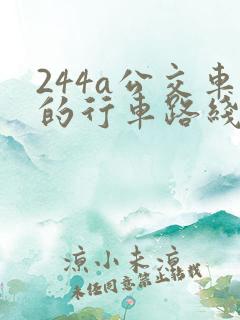 244a公交车
的行車路綫
凉小未凉
未经同意禁止转载